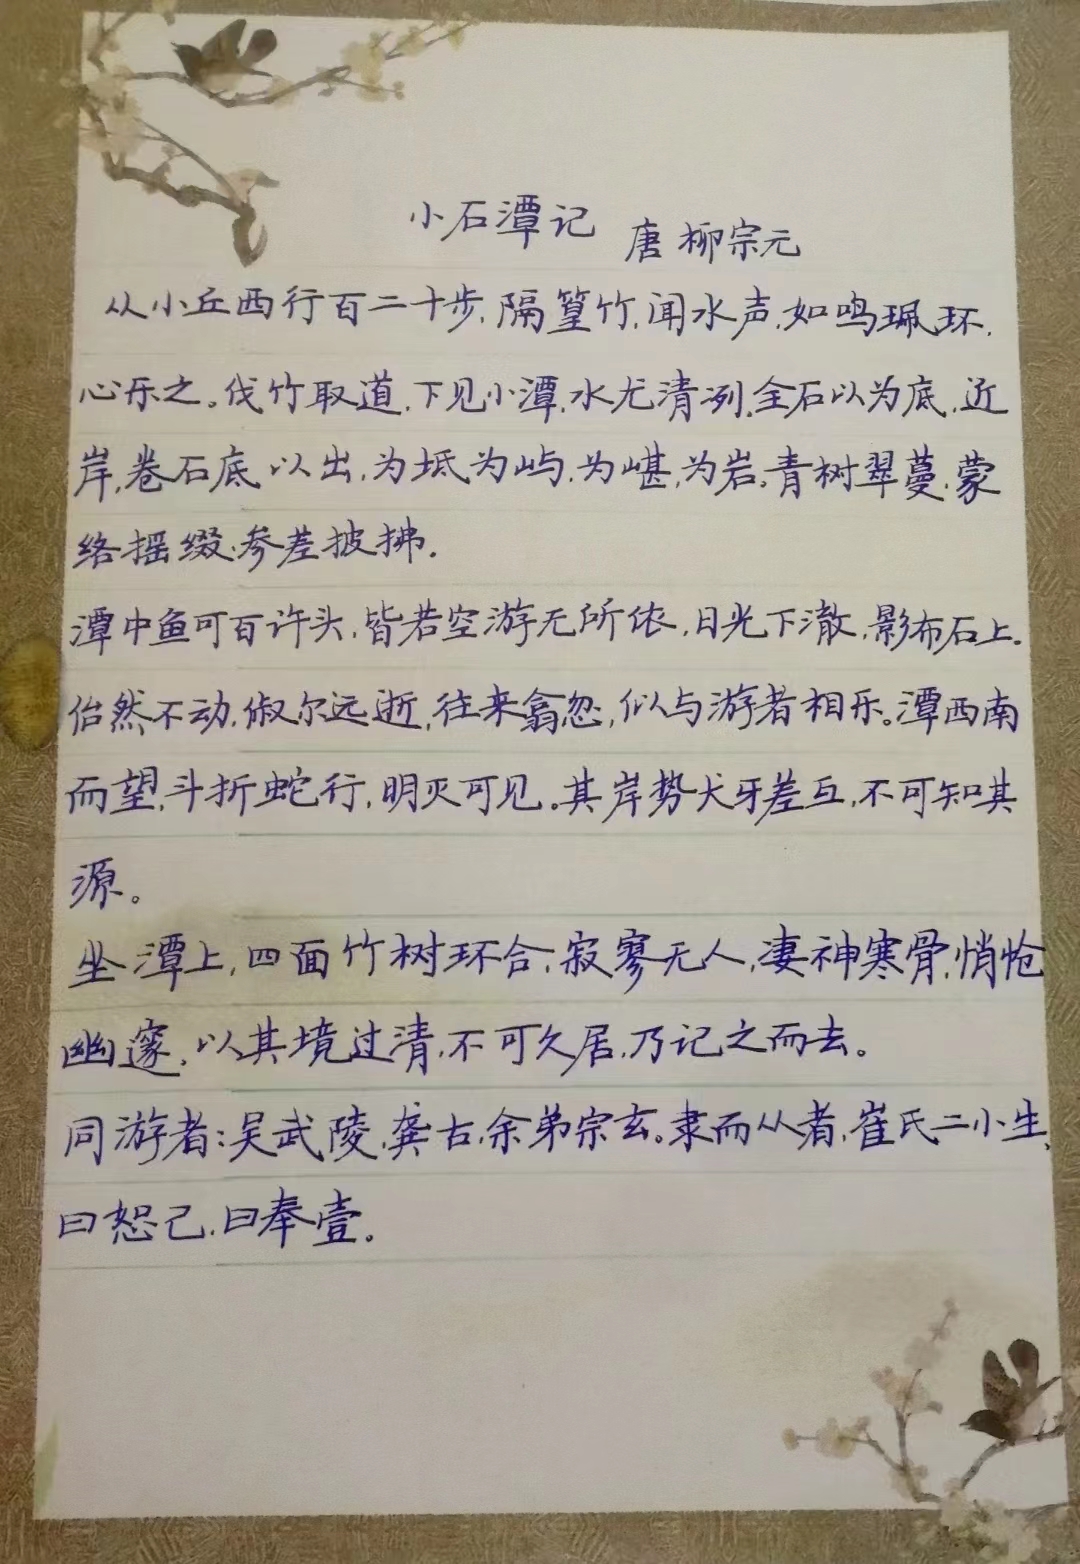 小石潭记 唐 柳宗元
从小丘西行百二十步,隔篁竹,闻水声,如鸣珮环,
心乐之。伐竹取道,下见小潭,水尤清冽,全石以为底,近
岸,卷石底以出,为坻为屿,为嵁,为岩。青树翠蔓,蒙
络摇缀,参差披拂.
潭中鱼可百许头,皆若空游无所依,日光下澈,影布石上.
佁然不动,俶尔远逝,往来翕忽,似与游者相乐。潭西南
而望,斗折蛇行,明灭可见。其岸势犬牙差互,不可知其
源。
坐潭上,四面竹树环合,寂寥无人,凄神寒骨,悄怆
幽邃,以其境过清,不可久居,乃记之而去。
同游者:吴武陵,龚古,余弟宗玄。隶而从者,崔氏二小生,
曰恕己,曰奉壹.